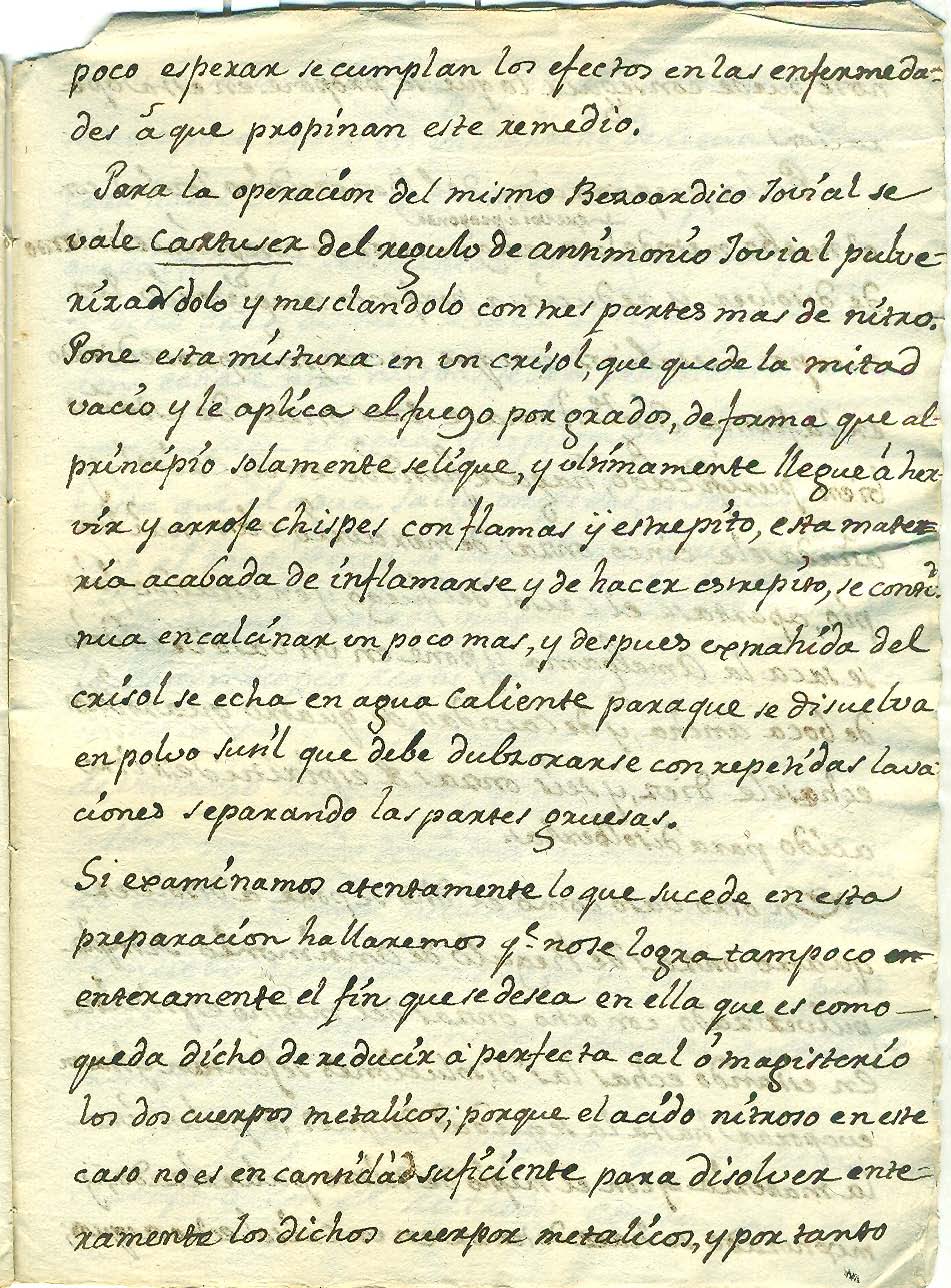 poco esperar se cumplan los efectos en las enfermeda=
des â que propinan este remedio.
Para la operacion del mismo Bezoardico Jovial se
vale Cartuser del regulo de antimonio Jovial pulve-
rizandolo y mesclandolo con tres partes mas de nitro.
Pone esta mistura en un crisol, que quede la mitad
vacio y le aplica el fuego por grados, de forma que al
principio solamente se lique, y ultimamente llegue á her-
vir y arroje chispes con flamas ÿ estrepito, esta mate=
ria acabada de inflamarse y de hacer estrepito, se conti-
nua en calcinar un poco mas, y despues extrahida del
crisol se echa en agua caliente paraque se disuelva
en polvo sutil que debe dulzorarse con repetidas lava
ciones separando las partes gruesas.
Si examinamos atentamente lo que sucede en esta
preparacion hallaremos qe. no se logra tampoco en
enteramente el fin que se desea en ella que es como—
queda dicho de reducir a perfecta cal ó magisterio
los dos cuerpos metalicos; porque el acido nitroso en este
caso no es en cantidad suficiente para disolver ente=
ramente los dichos cuerpor metalicos, y por tanto